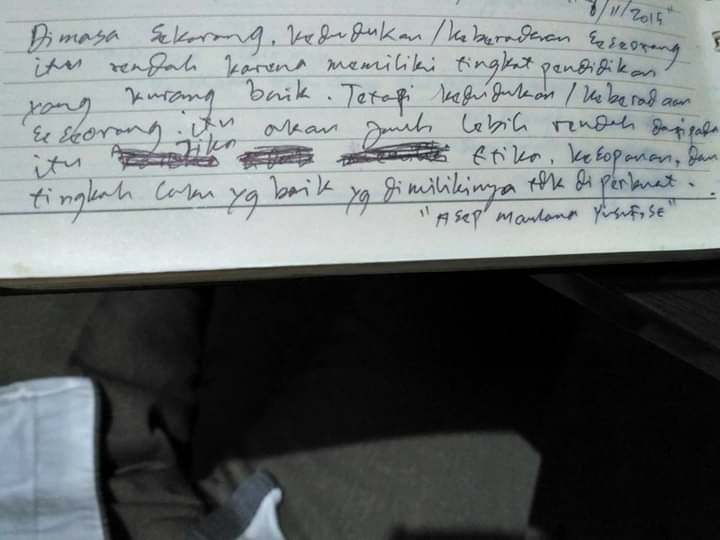 6/11/2015"
Dimasa Sekarang, kedudukan/keberadaan seseorang
itu rendah karena memiliki tingkat pendidikan
yang kurang baik. Tetapi kedudukan/keberadaan
seseorang itu akan jauh lebih rendah daripada
itu Jika Etika, kesopanan, dan
tingkah laku yg baik yg dimilikinya tdk diperkuat.
"Asep Maulana Yusuf, SE"